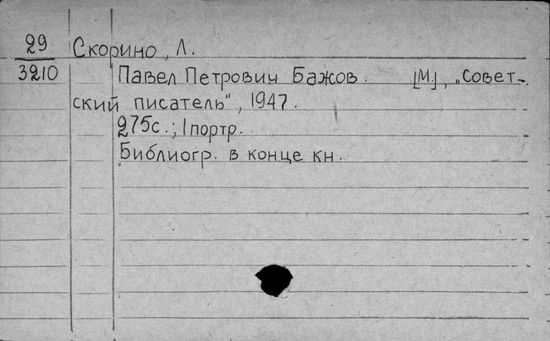 29 Скорино, Л.
3210 Павел Петрович Бажов. [М.], „Совет-
ский писатель", 1947.
275с.; 1 портр.
Библиогр. в конце кн.